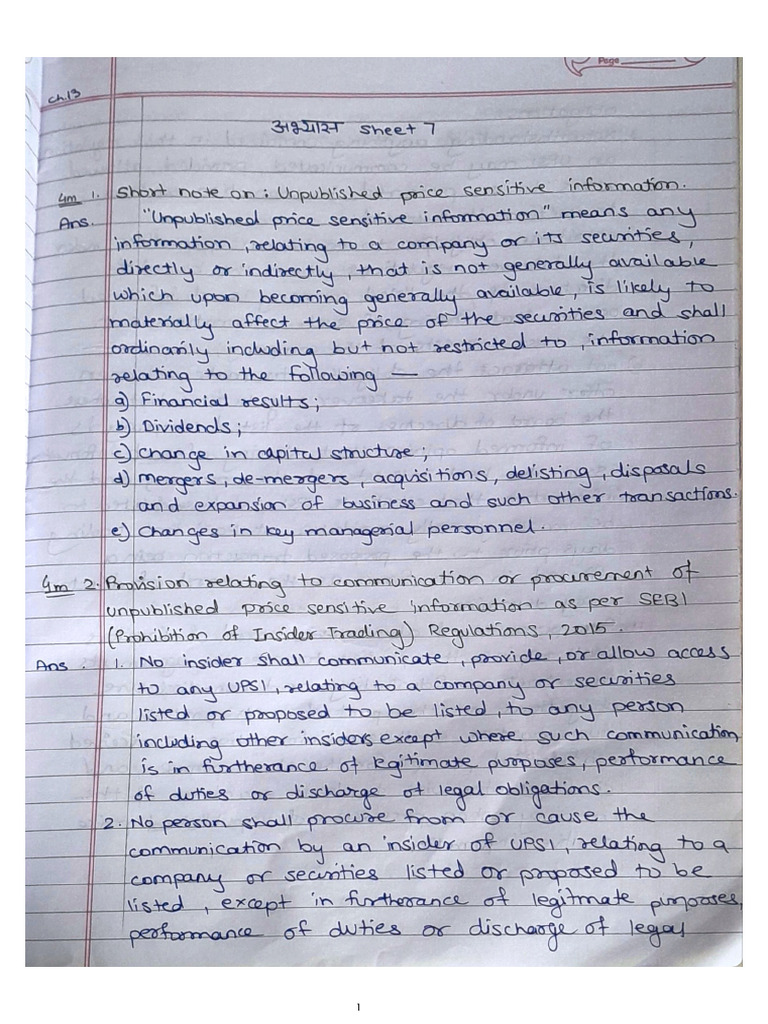 Page
Ch.13
अभ्यास sheet 7
4m 1. Short note on : Unpublished price sensitive information.
Ans. "Unpublished price sensitive information" means any
information, relating to a company or its securities,
directly or indirectly, that is not generally available
which upon becoming generally available, is likely to
materially affect the price of the securities and shall
ordinarily including but not restricted to, information
relating to the following —
a) Financial results;
b) Dividends;
c) Change in capital structure;
d) Mergers, de-mergers, acquisitions, delisting, disposals
and expansion of business and such other transactions.
e) Changes in key managerial personnel.
4m 2. Provision relating to communication or procurement of
unpublished price sensitive information as per SEBI
(Prohibition of Insider Trading) Regulations, 2015.
Ans. 1. No insider shall communicate, provide, or allow access
to any UPSI, relating to a company or securities
listed or proposed to be listed, to any person
including other insiders except where such communication
is in furtherance of legitimate purposes, performance
of duties or discharge of legal obligations.
2. No person shall procure from or cause the
communication by an insider of UPSI, relating to a
company or securities listed or proposed to be
listed, except in furtherance of legitmate purposes,
performance of duties or discharge of legal
1